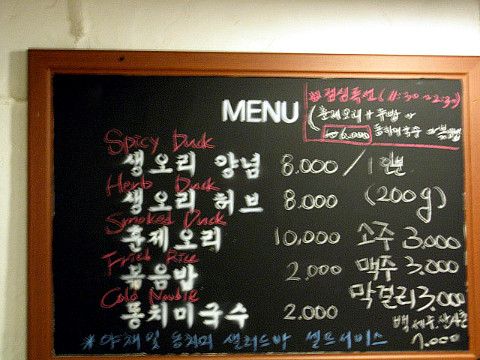 MENU
※점심특선 (11:30~2:30)
(훈제오리 + 쌈밥
→6.000 동치미국수
Spicy Duck
생오리 양념 8.000 / 1인분
Herb Duck
생오리 허브 8.000 (200g)
Smoked Duck
훈제오리 10,000 소주 3,000
Fried Rice
볶음밥 2,000 맥주 3,000
Cold Noodle 막걸리 3,000
동치미국수 2.000 백세주, 산사춘
7.000
*야채 및 동치미 샐러드바 셀프서비스